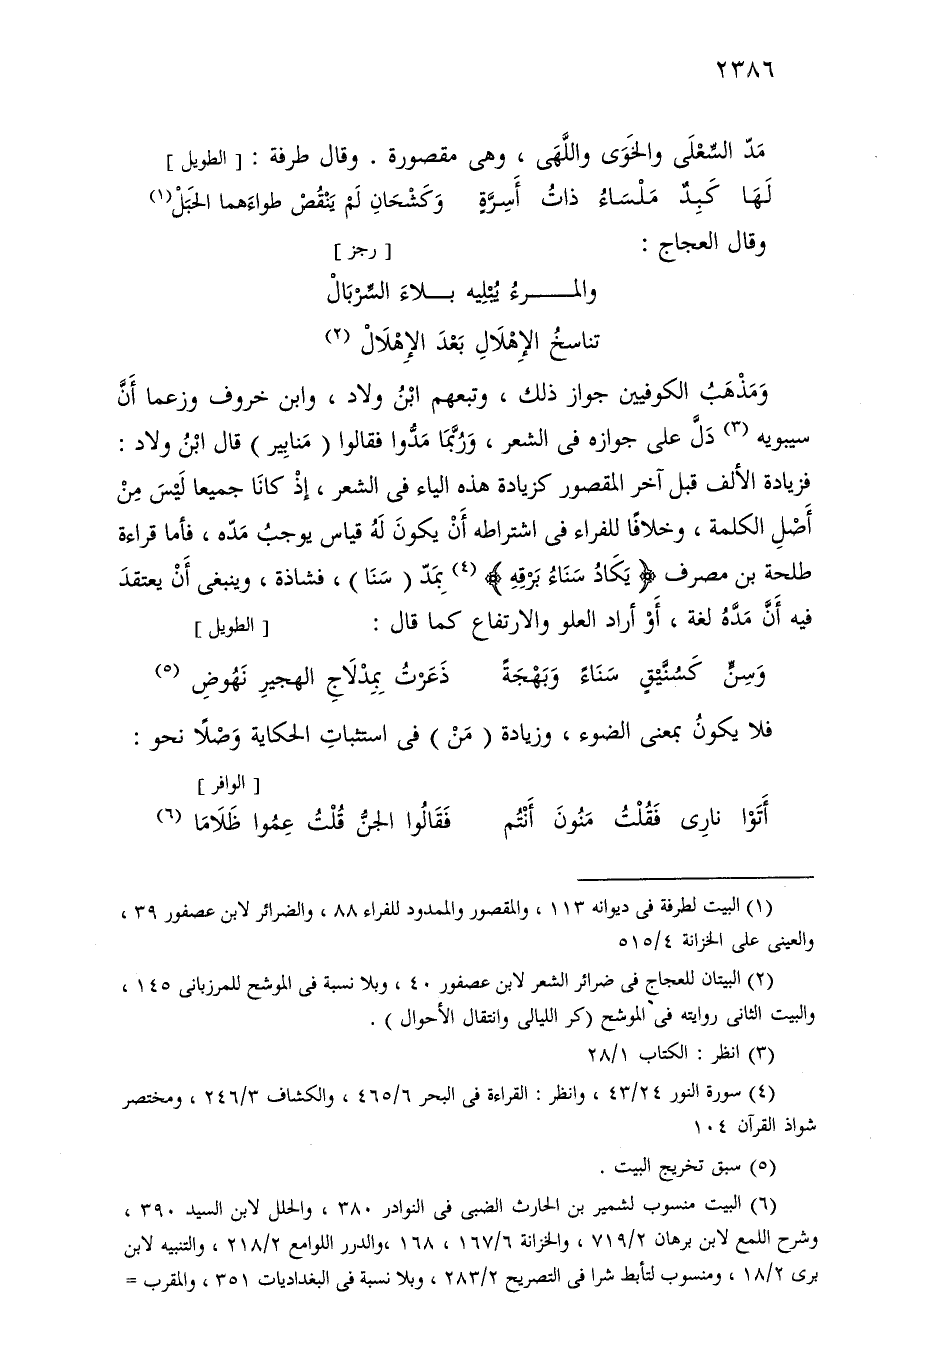 ٢٣٨٦
مَدّ السِّعْلَى والخَوَى واللَّهَى ، وهى مقصورة . وقال طرفة : [ الطويل ]
لَهَا كَبِدٌ مَلْسَاءُ ذاتُ أَسِرَّةٍ وَكَشْحَانِ لَمْ يَنْقُصْ طواءَهما الحَبَلْ (١)
وقال العجاج : [ رجز ]
والمـــــرءُ يُبْلِيه بـــلاءَ السِّرْبَالْ
تناسخُ الإِهْلَالِ بَعْدَ الإِهْلَالْ (٢)
وَمَذْهَبُ الكوفيين جواز ذلك ، وتبعهم ابْنُ ولاد ، وابن خروف وزعما أَنَّ
سيبويه (٣) دَلَّ على جوازه فى الشعر ، وَرُبَّمَا مَدُّوا فقالوا ( مَنابِير ) قال ابْنُ ولاد :
فزيادة الألف قبل آخر المقصور كزيادة هذه الياء فى الشعر ، إِذْ كانَا جميعا لَيْسَ مِنْ
أَصْلِ الكلمة ، وخلافًا للفراء فى اشتراطه أَنْ يكونَ لَهُ قياس يوجبُ مَدّه ، فأما قراءة
طلحة بن مصرف ﴿ يَكَادُ سَنَاءُ بَرْقِهِ ﴾ (٤) بِمَدّ ( سَنَا ) ، فشاذة ، وينبغى أَنْ يعتقدَ
فيه أَنَّ مَدَّهُ لغة ، أَوْ أراد العلو والارتفاع كما قال : [ الطويل ]
وَسِنٍّ كَسُنَّيْقٍ سَنَاءً وَبَهْجَةً ذَعَرْتُ بِمِدْلَاجِ الهجيرِ نَهُوضِ (٥)
فلا يكونُ بمعنى الضوء ، وزيادة ( مَنْ ) فى استثباتِ الحكاية وَصْلًا نحو :
[ الوافر ]
أَتَوْا نارِى فَقُلْتُ مَنُونَ أَنْتُم فَقَالُوا الجنُّ قُلْتُ عِمُوا ظَلَامَا (٦)
(١) البيت لطرفة فى ديوانه ١١٣ ، والمقصور والممدود للفراء ٨٨ ، والضرائر لابن عصفور ٣٩ ،
والعينى على الخزانة ٥١٥/٤
(٢) البيتان للعجاج فى ضرائر الشعر لابن عصفور ٤٠ ، وبلا نسبة فى الموشح للمرزبانى ١٤٥ ،
والبيت الثانى روايته فى الموشح (كر الليالى وانتقال الأحوال ) .
(٣) انظر : الكتاب ٢٨/١
(٤) سورة النور ٤٣/٢٤ ، وانظر : القراءة فى البحر ٤٦٥/٦ ، والكشاف ٢٤٦/٣ ، ومختصر
شواذ القرآن ١٠٤
(٥) سبق تخريج البيت .
(٦) البيت منسوب لشمير بن الحارث الضبى فى النوادر ٣٨٠ ، والحلل لابن السيد ٣٩٠ ،
وشرح اللمع لابن برهان ٧١٩/٢ ، والخزانة ١٦٧/٦ ، ١٦٨ ،والدرر اللوامع ٢١٨/٢ ، والتنبيه لابن
برى ١٨/٢ ، ومنسوب لتأبط شرا فى التصريح ٢٨٣/٢ ، وبلا نسبة فى البغداديات ٣٥١ ، والمقرب =